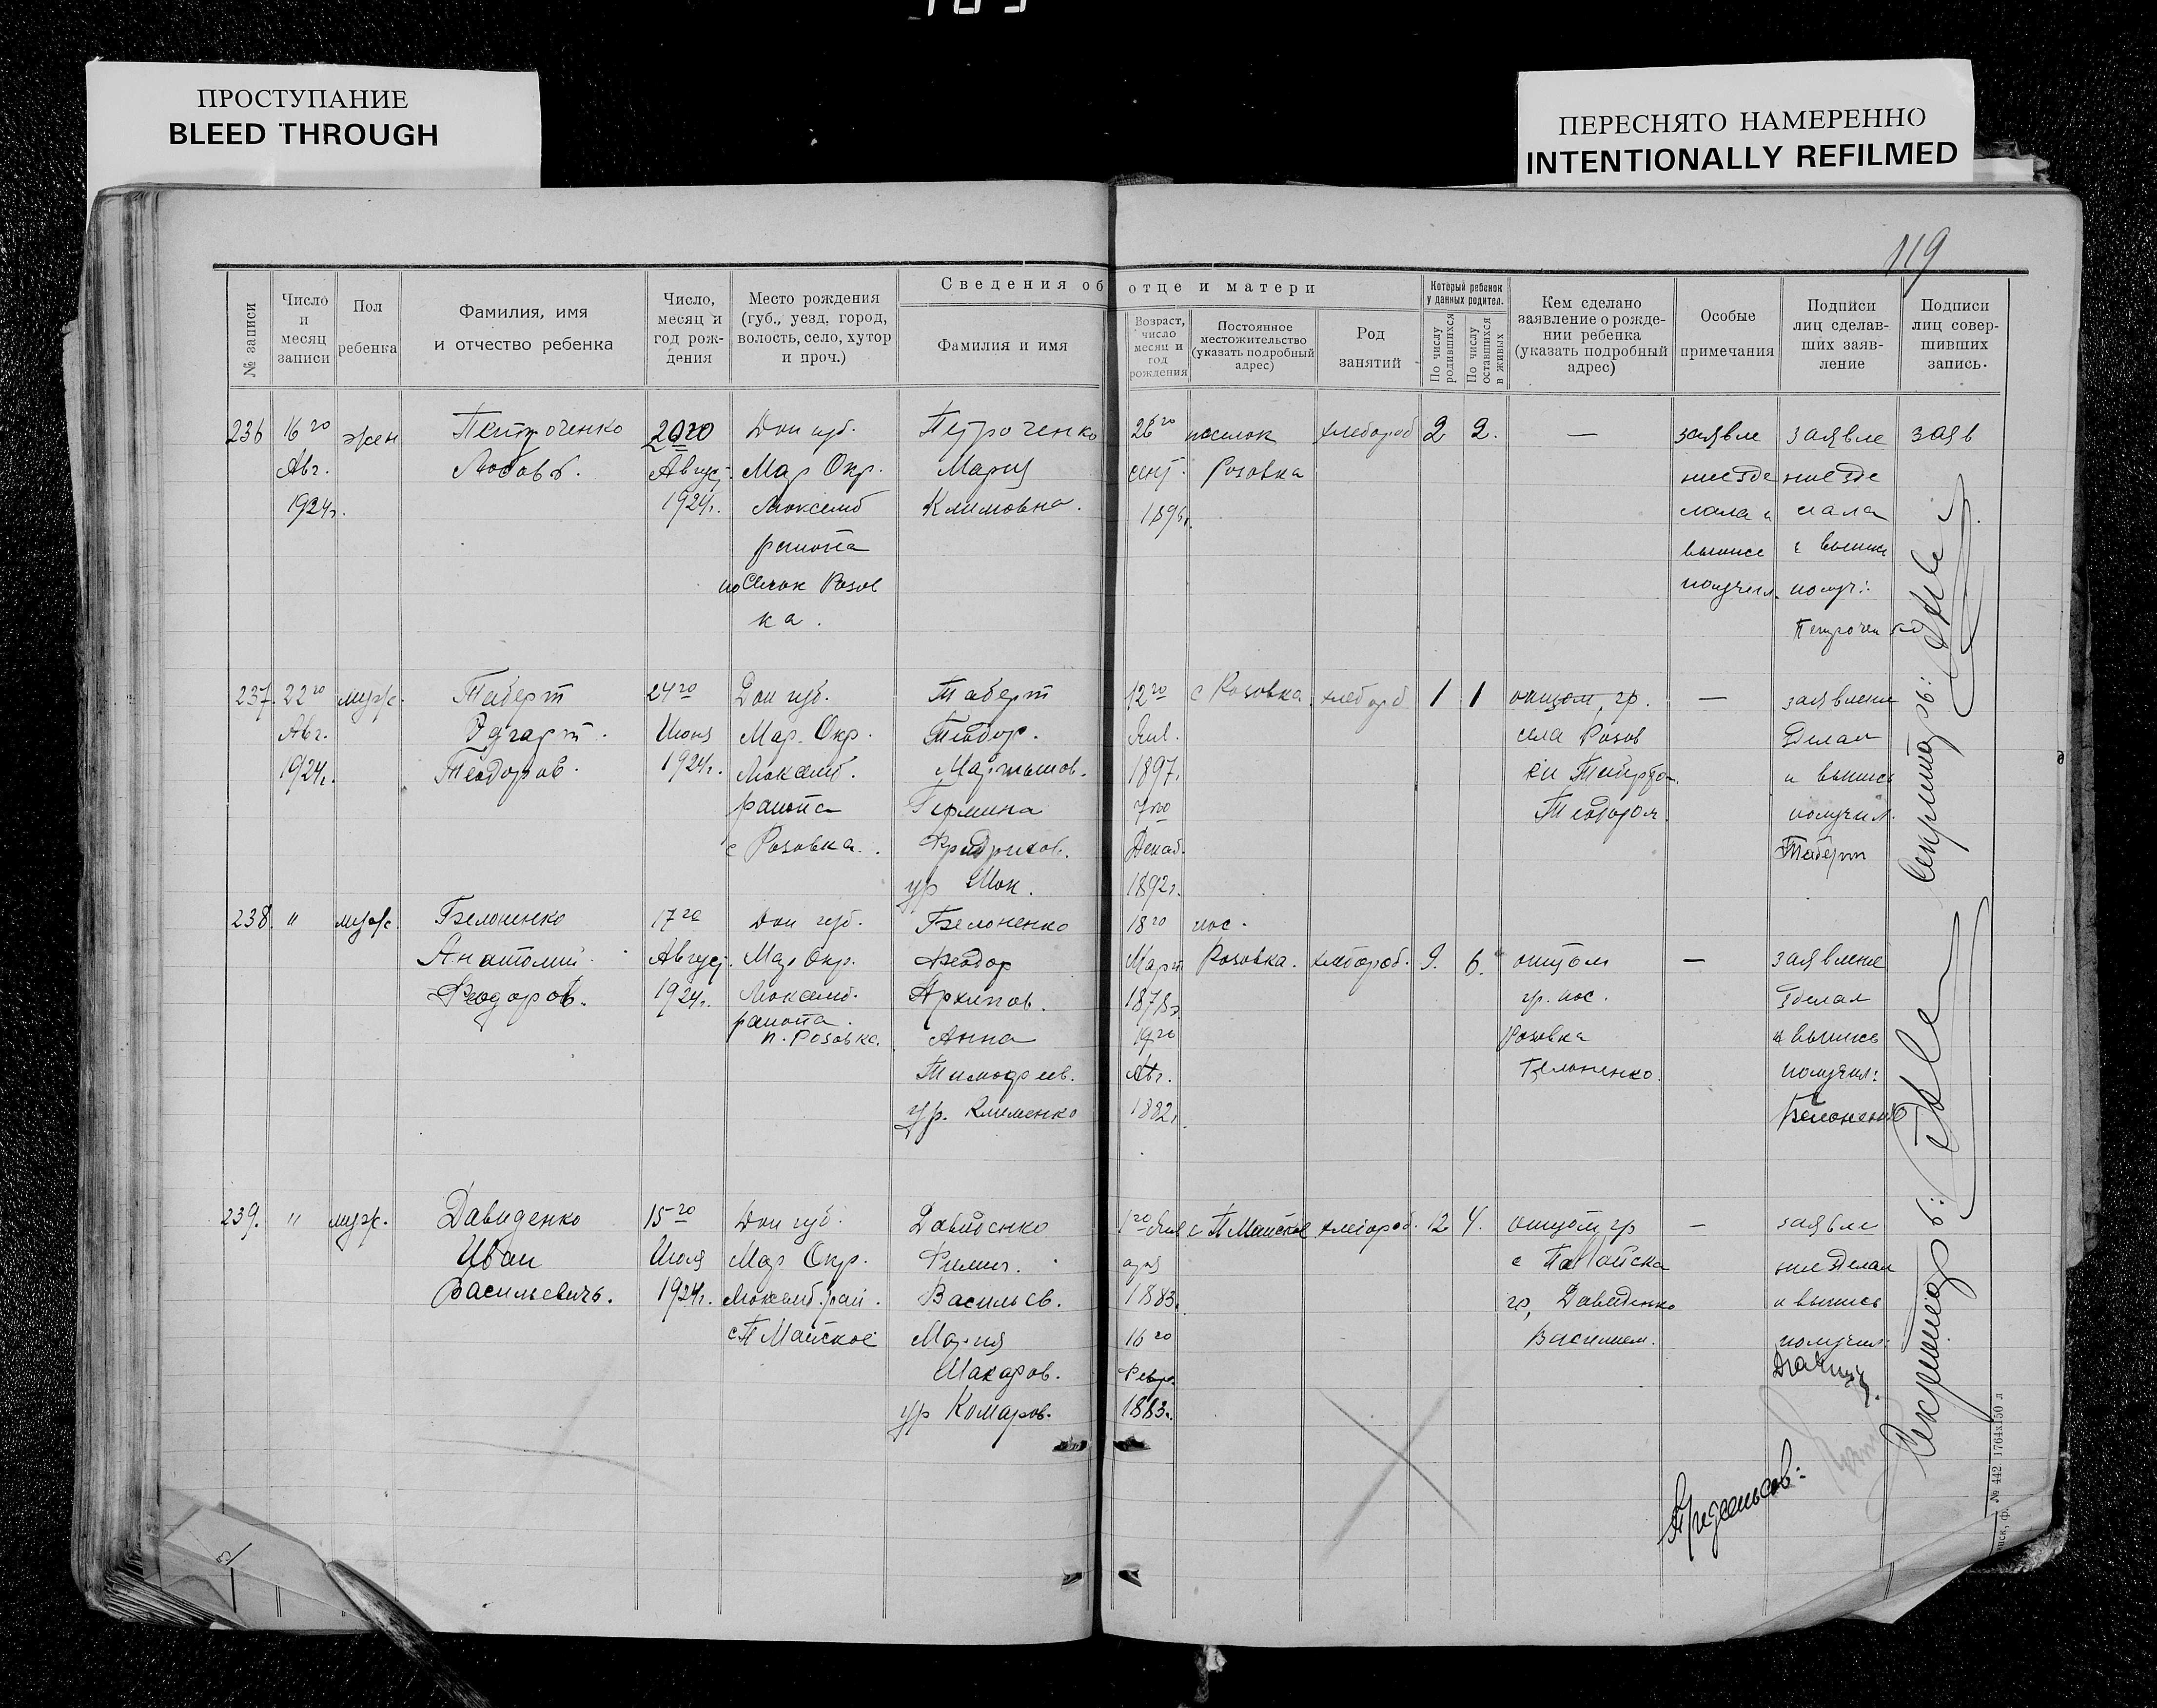 ПРОСТУПАНИЕ
BLEED THROUGH
ПЕРЕСНЯТО НАМЕРЕННО
INTENTIONALLY REFILMED
119
№ записи
Число и месяц записи
Пол ребенка
Фамилия, имя и отчество ребенка
Число, месяц и год рождения
Место рождения (губ., уезд, город, волость, село, хутор и проч.)
Сведения об отце и матери
Фамилия и имя
Возраст, число месяц и год рождения
Постоянное местожительство (указать подробный адрес)
Род занятий
Который ребенок у данных родител.
По числу родившихся
По числу оставшихся в живых
Кем сделано заявление о рождении ребенка (указать подробный адрес)
Особые примечания
Подписи лиц сделавших заявление
Подписи лиц совершивших запись.
236 16го жен Петроченко 20го Дон губ. Петроченко 26го поселок хлебороб 2 2. — заявле заявле заяв
Авг. Любовь. Август. Мар Окр. Мария сент. Розовка ние зде ние зде
1924г. 1924г. Люксемб Климовна. 1896г. лала и лала
района выписе и выписе
поселок Розов получил. получ:
ка. Петроченко
237. 22го муж. Таберт 24го Дон губ. Таберт 12го с Розовка хлебороб 1 1 отцом гр. — заявление
Авг. Эдгарт. Июня Мар. Окр. Теодор. Янв. села Розов зделал
1924г. Теодоров. 1924г. Люксемб. Мартынов. 1897г. и выпись
района Гермина 7го Теодором получил.
с Розовка. Фридрихов. Декаб. Таберт
ур 1892г.
238. " муж. Белоненко 17го Дон губ. Белоненко 18го пос.
Анатолий Август. Мар Окр. Феодор Март Розовка. хлебороб. 9. 6. отцом — заявление
Феодоров. 1924г. Люксемб. Архипов. 1878г гр. пос. зделал
района.
п. Розовка. Анна 19го Розовка и выпись
Тимофеев. Авг. Белоненко. получил:
ур. Клименко 1882г. Белоненко
239. " муж. Давиденко 15го Дон губ. Давиденко с П Майское хлебороб. 12 4. отцом гр — заявле
Иван Июля Мар Окр. с ние зделал
Васильевичь. 1924г. Люксемб. рай. Васильев. 1883. гр, Давиденко и выпись
с П Майское Мария 16го Василием. получил:
Макаров. Февр.
ур Комаров. 1883г.
Секретарь:
Секретарь:
№ 442 1764х150 л